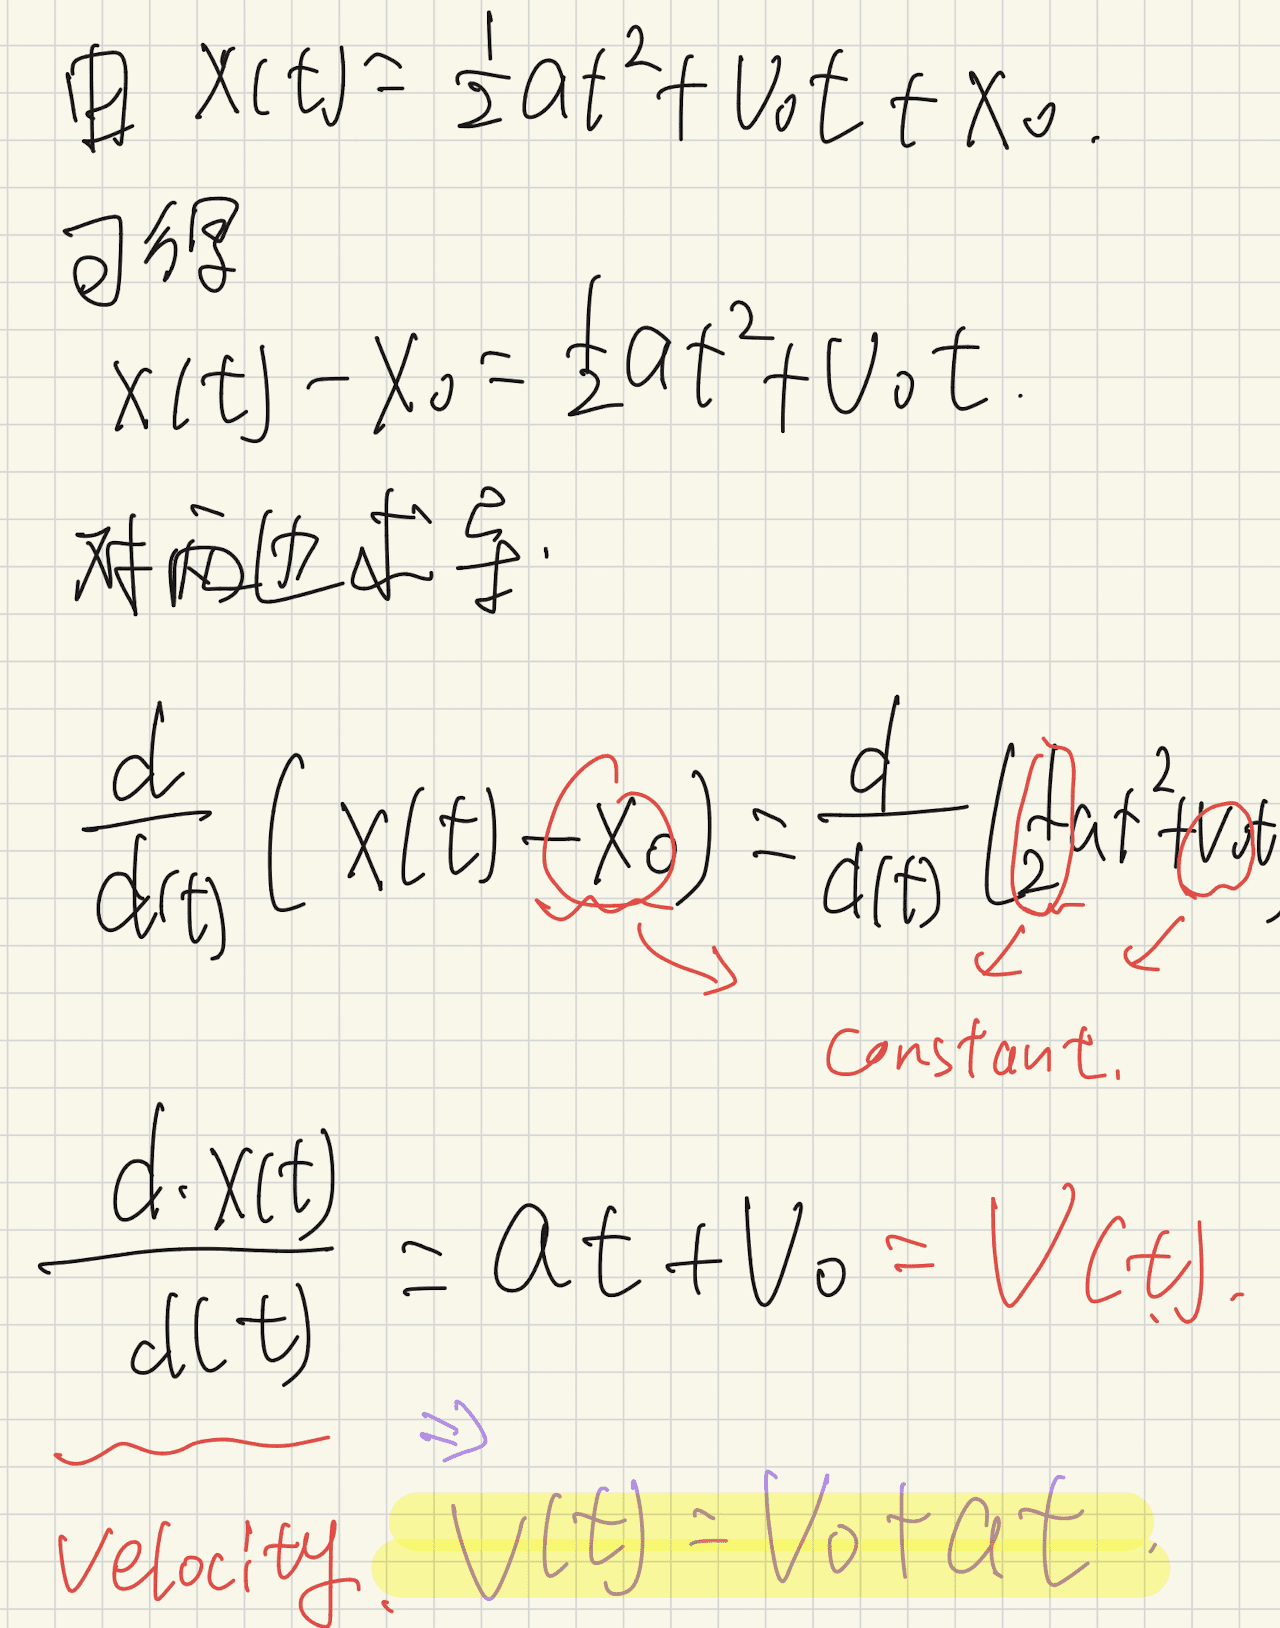 由 x(t) = ½at² + v₀t + x₀.
可得
x(t) - x₀ = ½at² + v₀t.
对两边求导.
d/d(t) (x(t) - x₀) = d/d(t) (½at² + v₀t)
constant.
d·x(t)/d(t) = at + v₀ = V(t).
⇒
velocity. V(t) = V₀ + at.